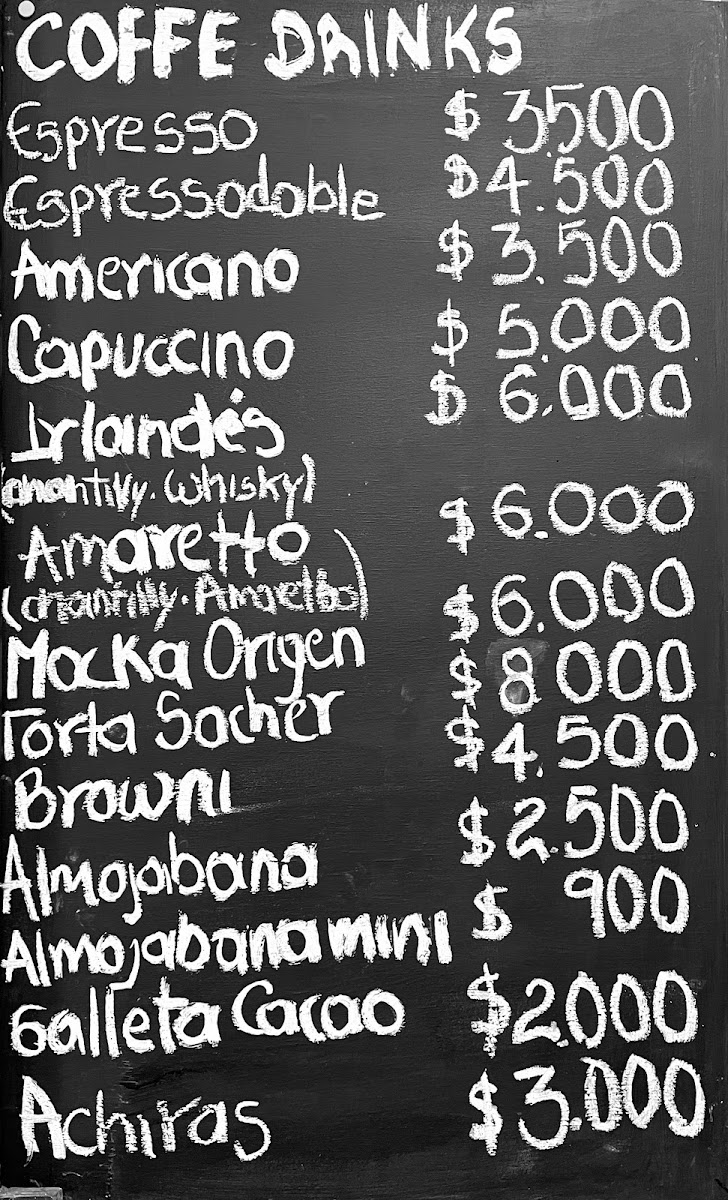 COFFE DRINKS
Espresso $ 3500
Espressodoble $ 4.500
Americano $ 3.500
Capuccino $ 5.000
Irlandés $ 6.000
(chantilly. Whisky)
Amaretto $ 6.000
(chantilly. Amaretto)
Mocka Origen $ 6.000
Torta Sacher $ 8000
Browni $ 4.500
Almojabana $ 2.500
Almojabana mini $ 900
Galleta Cacao $ 2.000
Achiras $ 3.000